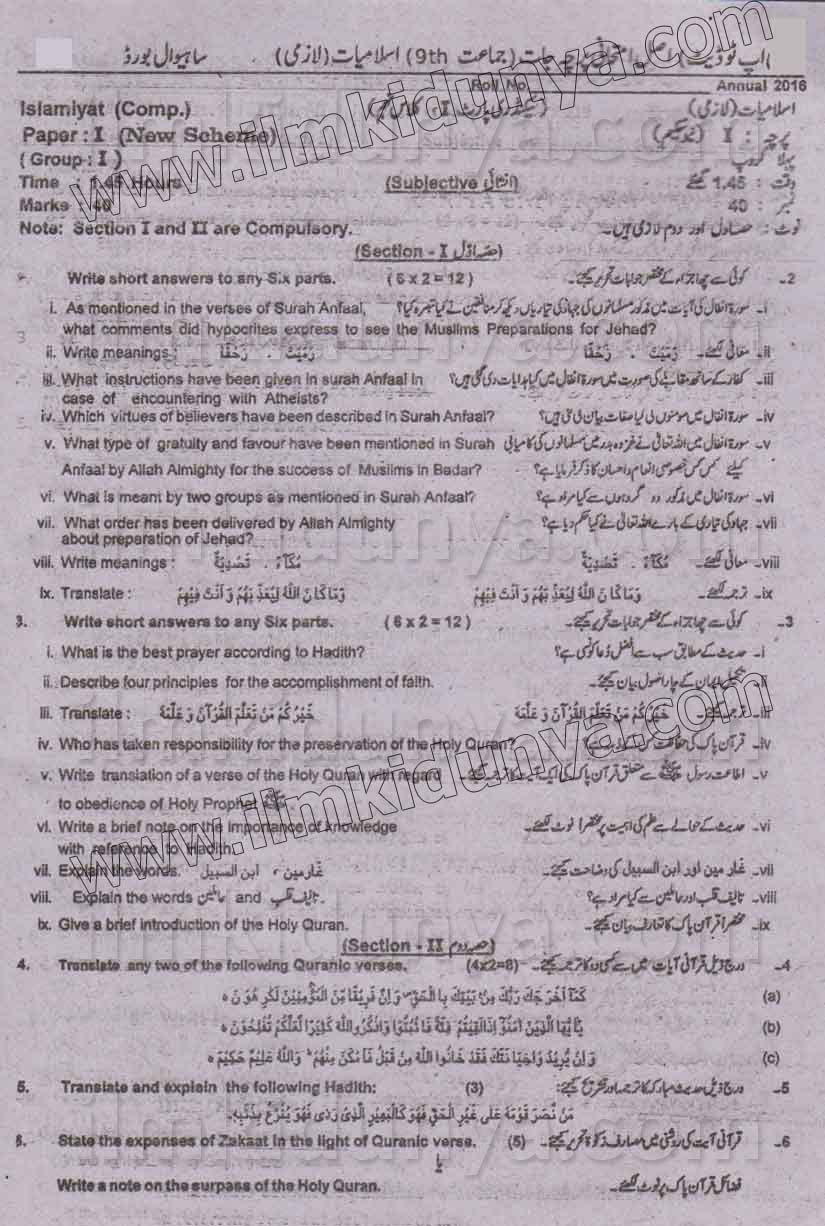 (اپ ٹو ڈیٹ) (جماعت 9th) اسلامیات (لازمی) ساہیوال بورڈ
Roll No. Annual 2016
Islamiyat (Comp.) اسلامیات (لازمی)
Paper : I (New Scheme) پرچہ : I
(Group : I) پہلا گروپ
Time : 1.45 Hours (Subjective انشائی) وقت : 1.45 گھنٹے
Marks : 40 نمبر : 40
Note: Section I and II are Compulsory. نوٹ : حصہ اول اور دوم لازمی ہیں۔
(Section - I حصہ اول)
Write short answers to any Six parts. (6 x 2 = 12) کوئی سے چھ اجزاء کے مختصر جوابات تحریر کیجئے۔ 2-
i. As mentioned in the verses of Surah Anfaal, سورۃ انفال کی آیات میں مذکور مسلمانوں کی جہاد کی تیاریاں دیکھ کر منافقین نے کیا تبصرہ کیا؟ i-
what comments did hypocrites express to see the Muslims Preparations for Jehad?
ii. Write meanings : رَمَيْتَ ، زَحْفًا معانی لکھئے۔ ii-
iii. What instructions have been given in surah Anfaal in کفار کے ساتھ مقابلے کی صورت میں سورۃ انفال میں کیا ہدایات دی گئی ہیں؟ iii-
case of encountering with Atheists?
iv. Which virtues of believers have been described in Surah Anfaal? سورۃ انفال میں مومنوں کی کیا صفات بیان کی گئی ہیں؟ iv-
v. What type of gratuity and favour have been mentioned in Surah سورۃ انفال میں اللہ تعالیٰ نے غزوہ بدر میں مسلمانوں کی کامیابی v-
Anfaal by Allah Almighty for the success of Muslims in Badar? کیلئے کس کس خصوصی انعام و احسان کا ذکر فرمایا ہے؟
vi. What is meant by two groups as mentioned in Surah Anfaal? سورۃ انفال میں مذکور دو گروہوں سے کیا مراد ہے؟ vi-
vii. What order has been delivered by Allah Almighty جہاد کی تیاری کے بارے اللہ تعالیٰ نے کیا حکم دیا ہے؟ vii-
about preparation of Jehad?
viii. Write meanings : مُكَآءً ، تَصْدِيَةً معانی لکھئے۔ viii-
ix. Translate : وَمَا كَانَ اللهُ لِيُعَذِّبَهُمْ وَاَنْتَ فِيْهِمْ ترجمہ لکھئے۔ ix-
3. Write short answers to any Six parts. (6 x 2 = 12) کوئی سے چھ اجزاء کے مختصر جوابات تحریر کیجئے۔ 3-
i. What is the best prayer according to Hadith? حدیث کے مطابق سب سے افضل دُعا کونسی ہے؟ i-
ii. Describe four principles for the accomplishment of faith. تکمیل ایمان کے چار اصول بیان کیجئے۔ ii-
iii. Translate : خَيْرُكُمْ مَنْ تَعَلَّمَ الْقُرْآنَ وَعَلَّمَهٗ ترجمہ کیجئے۔ iii-
iv. Who has taken responsibility for the preservation of the Holy Quran? قرآن پاک کی حفاظت iv-
v. Write translation of a verse of the Holy Quran with regard اطاعت رسول ﷺ سے متعلق قرآن پاک کی ایک آیت کا ترجمہ کیجئے۔ v-
to obedience of Holy Prophet ﷺ
vi. Write a brief note on the importance of knowledge حدیث کے حوالے سے علم کی اہمیت پر مختصراً نوٹ لکھئے۔ vi-
with reference to Hadith.
vii. Explain the words. غارمین ، ابن السبیل غارمین اور ابن السبیل کی وضاحت کیجئے۔ vii-
viii. Explain the words عاملین and تالیف قلب تالیف قلب اور عاملین سے کیا مراد ہے؟ viii-
ix. Give a brief introduction of the Holy Quran. مختصراً قرآن پاک کا تعارف بیان کیجئے۔ ix-
(Section - II حصہ دوم)
4. Translate any two of the following Quranic verses. (4x2=8) درج ذیل قرآنی آیات میں سے کسی دو کا ترجمہ کیجئے۔ 4-
كَمَآ اَخْرَجَكَ رَبُّكَ مِنْۢ بَيْتِكَ بِالْحَقِّ وَاِنَّ فَرِيْقًا مِّنَ الْمُؤْمِنِيْنَ لَكٰرِهُوْنَ ٥ (a)
يٰٓاَيُّهَا الَّذِيْنَ اٰمَنُوْٓا اِذَا لَقِيْتُمْ فِئَةً فَاثْبُتُوْا وَاذْكُرُوا اللهَ كَثِيْرًا لَّعَلَّكُمْ تُفْلِحُوْنَ ٥ (b)
وَاِنْ يُّرِيْدُوْا خِيَانَتَكَ فَقَدْ خَانُوا اللهَ مِنْ قَبْلُ فَاَمْكَنَ مِنْهُمْ ۭ وَاللهُ عَلِيْمٌ حَكِيْمٌ ٥ (c)
5. Translate and explain the following Hadith: (3) درج ذیل حدیث مبارکہ کا ترجمہ اور تشریح کیجئے: 5-
مَنْ نَصَرَ قَوْمَهٗ عَلٰى غَيْرِ الْحَقِّ فَهُوَ كَالْبَعِيْرِ الَّذِىْ رَدٰى فَهُوَ يُنْزَعُ بِذَنَبِهٖ۔
6. State the expenses of Zakaat in the light of Quranic verse. (5) قرآنی آیت کی روشنی میں مصارف زکوٰۃ تحریر کیجئے۔ 6-
یا
Write a note on the surpass of the Holy Quran. فضائل قرآن پاک پر نوٹ لکھئے۔
www.ilmkidunya.com
www.ilmkidunya.com